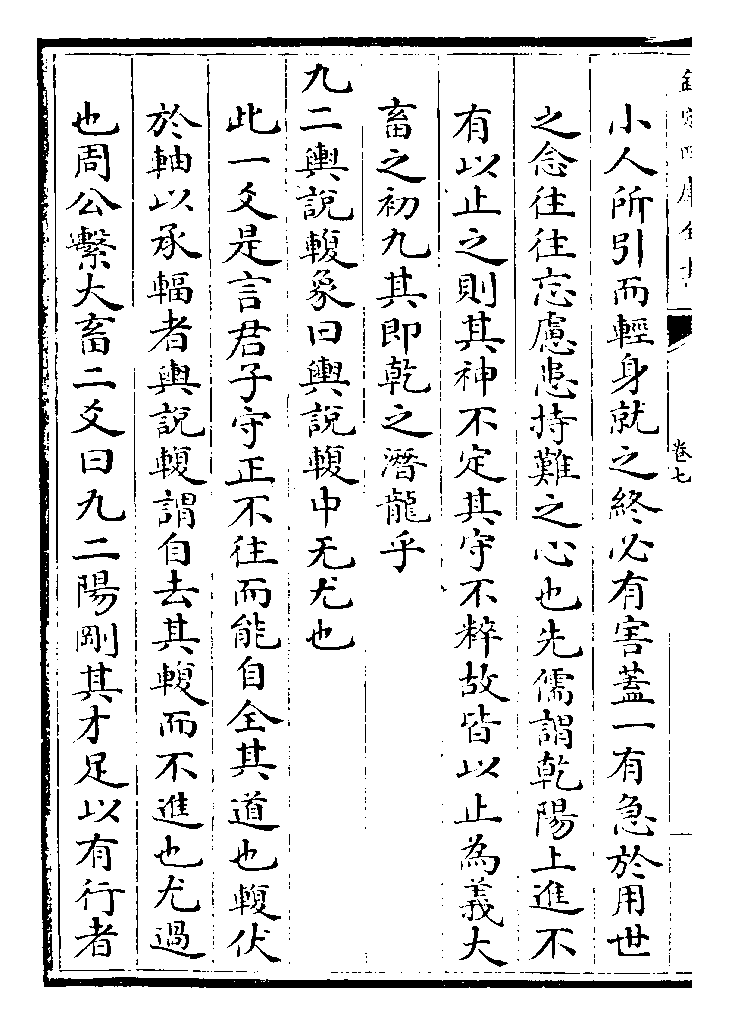 欽定四庫全書
卷七
小人所引而輕身就之終必有害蓋一有急於用世
之念往往忘慮患持難之心也先儒謂乾陽上進不
有以止之則其神不定其守不粹故皆以止為義大
畜之初九其即乾之潛龍乎
九二輿說輹象曰輿說輹中无尤也
此一爻是言君子守正不往而能自全其道也輹伏
於軸以承輻者輿說輹謂自去其輹而不進也尤過
也周公繫大畜二爻曰九二陽剛其才足以有行者